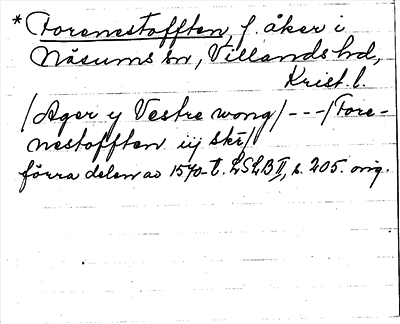 * Forenestofften, f. åker i
Näsums sn, Villands hd,
Krist. l.
/Ager y Vestre wong/ - - - /Fore-
nestofften iij skr/
förra delen av 1570-t. LSLB II, s. 205. orig.